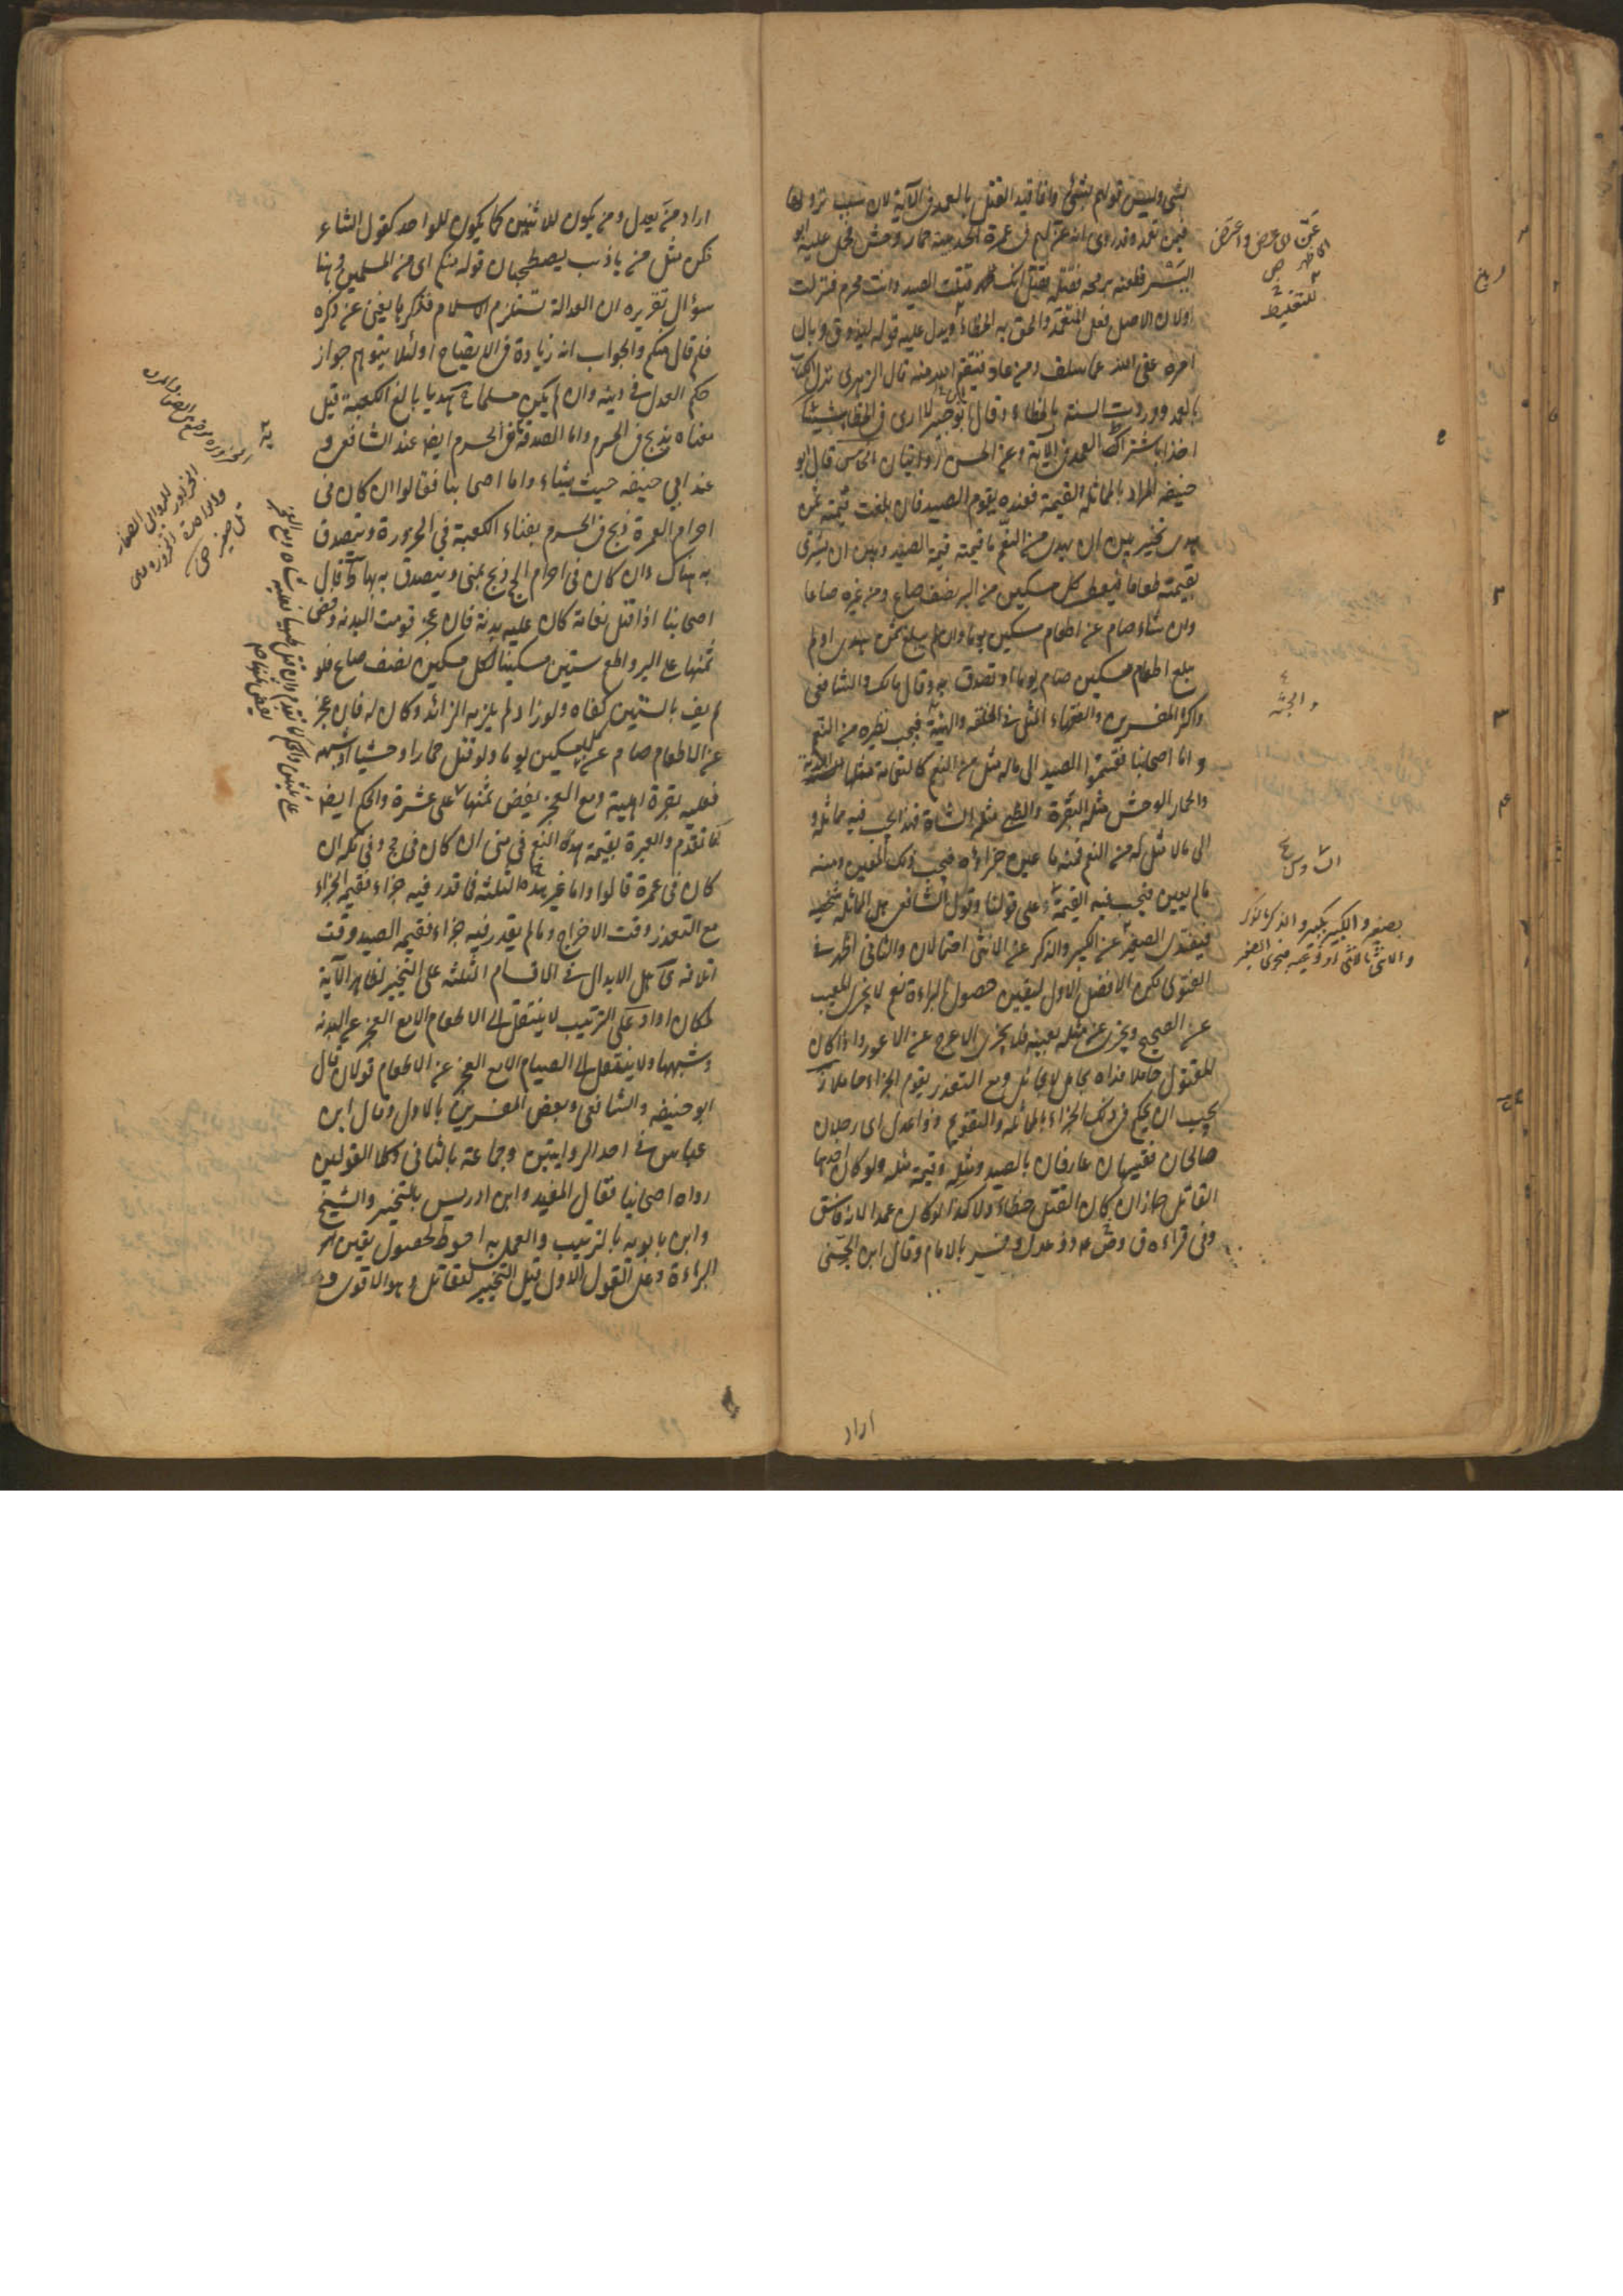 بشئ وليس قولهم بشئ وانما قيد القتل بالعمد فى الآية لان سبب نزولها
فيمن تعمد وقد روى انه عن لهم فى عمرة الحديبية حمار وحش فحمل عليه ابو
اليسر فطعنه برمحه فقتله فقيل له قتلت الصيد وانت محرم فنزلت
اولان الاصل فعل المتعمد والحق به الخطاء ويدل عليه قوله ليذوق وبال
امره عفى الله عما سلف ومن عاد فينتقم الله منه قال الزهرى نزل الكتاب
بالعمد ووردت السنة بالخطاء وقال ابن جبير لا ارى فى الخطاء شيئا
اخذا باشتراط العمد فى الآية وعن الحسن روايتان الخامس قال ابو
حنيفه المراد بالمماثلة القيمة فعنده يقوم الصيد فان بلغت قيمته ثمن
هدى تخير بين ان يهدى من النعم ما قيمته قيمة الصيد وبين ان يشترى
بقيمته طعاما فيعطى كل مسكين من البر نصف صاع ومن غيره صاعا
وان شاء صام عن اطعام مسكين يوما وان لم يبلغ ثمن هدى او لم
يبلغ اطعام مسكين صام يوما او تصدق به وقال مالك والشافعى
واكثر المفسرين والفقهاء المثل فى الخلقة والهيئة فيجب نظيره من النعم
واما اصحابنا فقسموا الصيد الى ماله مثل من النعم كالنعامة مثلها البدنة
والحمار الوحش مثله البقرة والظبى مثله الشاة فهذا يجب فيه مماثله و
الى ما لا مثل له من النعم فمنه ما عين جزاؤه فيجب ذلك المعين ومنه
ما لم يعين فيجب فيه القيمة وعلى قولنا وقول الشافعى هل المماثلة شخصية
فيفدى الصغير عن الكبير والذكر عن الانثى احتمالان والثانى اظهر فى
الفتوى لكن الافضل الاول ليقين حصول البراءة نعم لا يجزى المعيب
عن الصحيح ويجزى عن مثله بعينه فلا يجزى الاعرج عن الاعور واذا كان
المقتول حاملا فداه بحامل مماثل ومع التعذر يقوم الجزاء حاملا
يجب ان يحكم فى ذلك الجزاء بالمماثلة والتقويم ذوا عدل اى رجلان
صالحان فقيهان عارفان بالصيد ومثله وقيمة مثله ولو كان احدهما
القاتل جاز ان كان القتل خطاء ولا كذا لو كان عمدا لانه فاسق
وفى قراءة ق وص ع ذو عدل وفسر بالامام وقال ابن الجنى
اراد
عنّ اى عرض واعترض
اى ظهر ص
للتغليظ
والجثة
السادس
بصغير والكبير بكبير والذكر بالذكر
والانثى بالانثى او نوعيه فيجزى الصغير
اراد من يعدل ومن يكون للاثنين كما يكون للواحد كقول الشاعر
نكن مثل من ياذئب يصطحبان قوله منكم اى من المسلمين وهنا
سؤال تقريره ان العدالة تستلزم الاسلام فذكرها يغنى عن ذكره
فلم قال منكم والجواب انه زيادة فى الايضاح او لئلا يتوهم جواز
حكم العدل فى دينه وان لم يكن مسلما هديا بالغ الكعبة قيل
معناه يذبح فى الحرم واما الصدقة ففى الحرم ايضا عند الشافعى و
عند ابي حنيفه حيث يشاء واما اصحابنا فقالوا ان كان فى
احرام العمرة ذبح فى الحرم بفناء الكعبة فى الحزورة وتصدق
به هناك وان كان فى احرام الحج ذبح بمنى وتصدق به بها قال
اصحابنا اذا قتل نعامة كان عليه بدنة فان عجز قومت البدنة وفض
ثمنها على البر واطعم ستين مسكينا لكل مسكين نصف صاع فلو
لم يف بالستين كفاه ولو زاد لم يلزمه الزائد وكان له فان عجز
عن الاطعام صام عن كل مسكين يوما ولو قتل حمارا وحشيا او شبهه
فعليه بقرة اهلية ومع العجز يفض ثمنها على عشرة والحكم ايضا
كما تقدم والعبرة بقيمة هذه النعم فى منى ان كان فى حج وفى مكة ان
كان فى عمرة قالوا واما غير هذه الثلثة فما قدر فيه جزاء فقيمة الجزاء
مع التعذر وقت الاخراج وما لم يقدر فيه جزاء فقيمة الصيد وقت
اتلافه هل الابدال فى الاقسام الثلثة على التخيير لظاهر الآية
لمكان او او على الترتيب لا ينتقل الى الاطعام الا مع العجز عن البدنة
وشبهها ولا ينتقل الى الصيام الا مع العجز عن الاطعام قولان قال
ابو حنيفه والشافعى وبعض المفسرين بالاول وقال ابن
عباس فى احد الروايتين وجماعة بالثانى وكلا القولين
رواه اصحابنا فقال المفيد وابن ادريس بالتخيير والشيخ
وابن بابويه بالترتيب والعمل به احوط لحصول يقين
البراءة وعلى القول الاول قيل التخيير للقاتل وهو الاقوى و